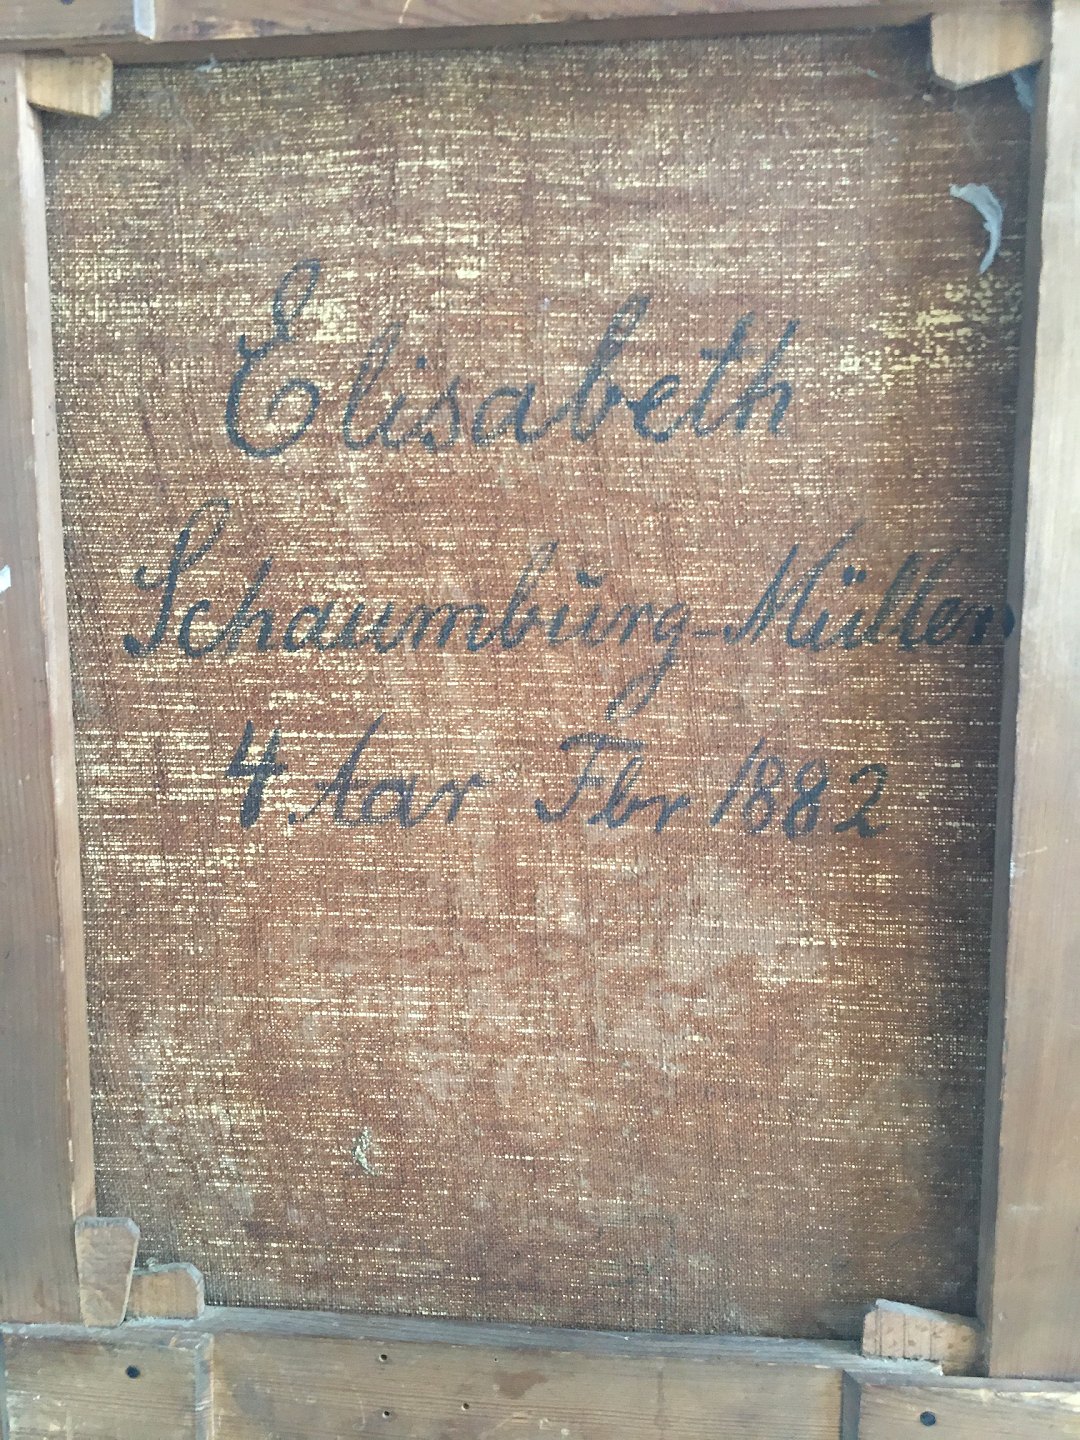 Elisabeth
Schaumburg-Müller
4 Aar Fbr 1882